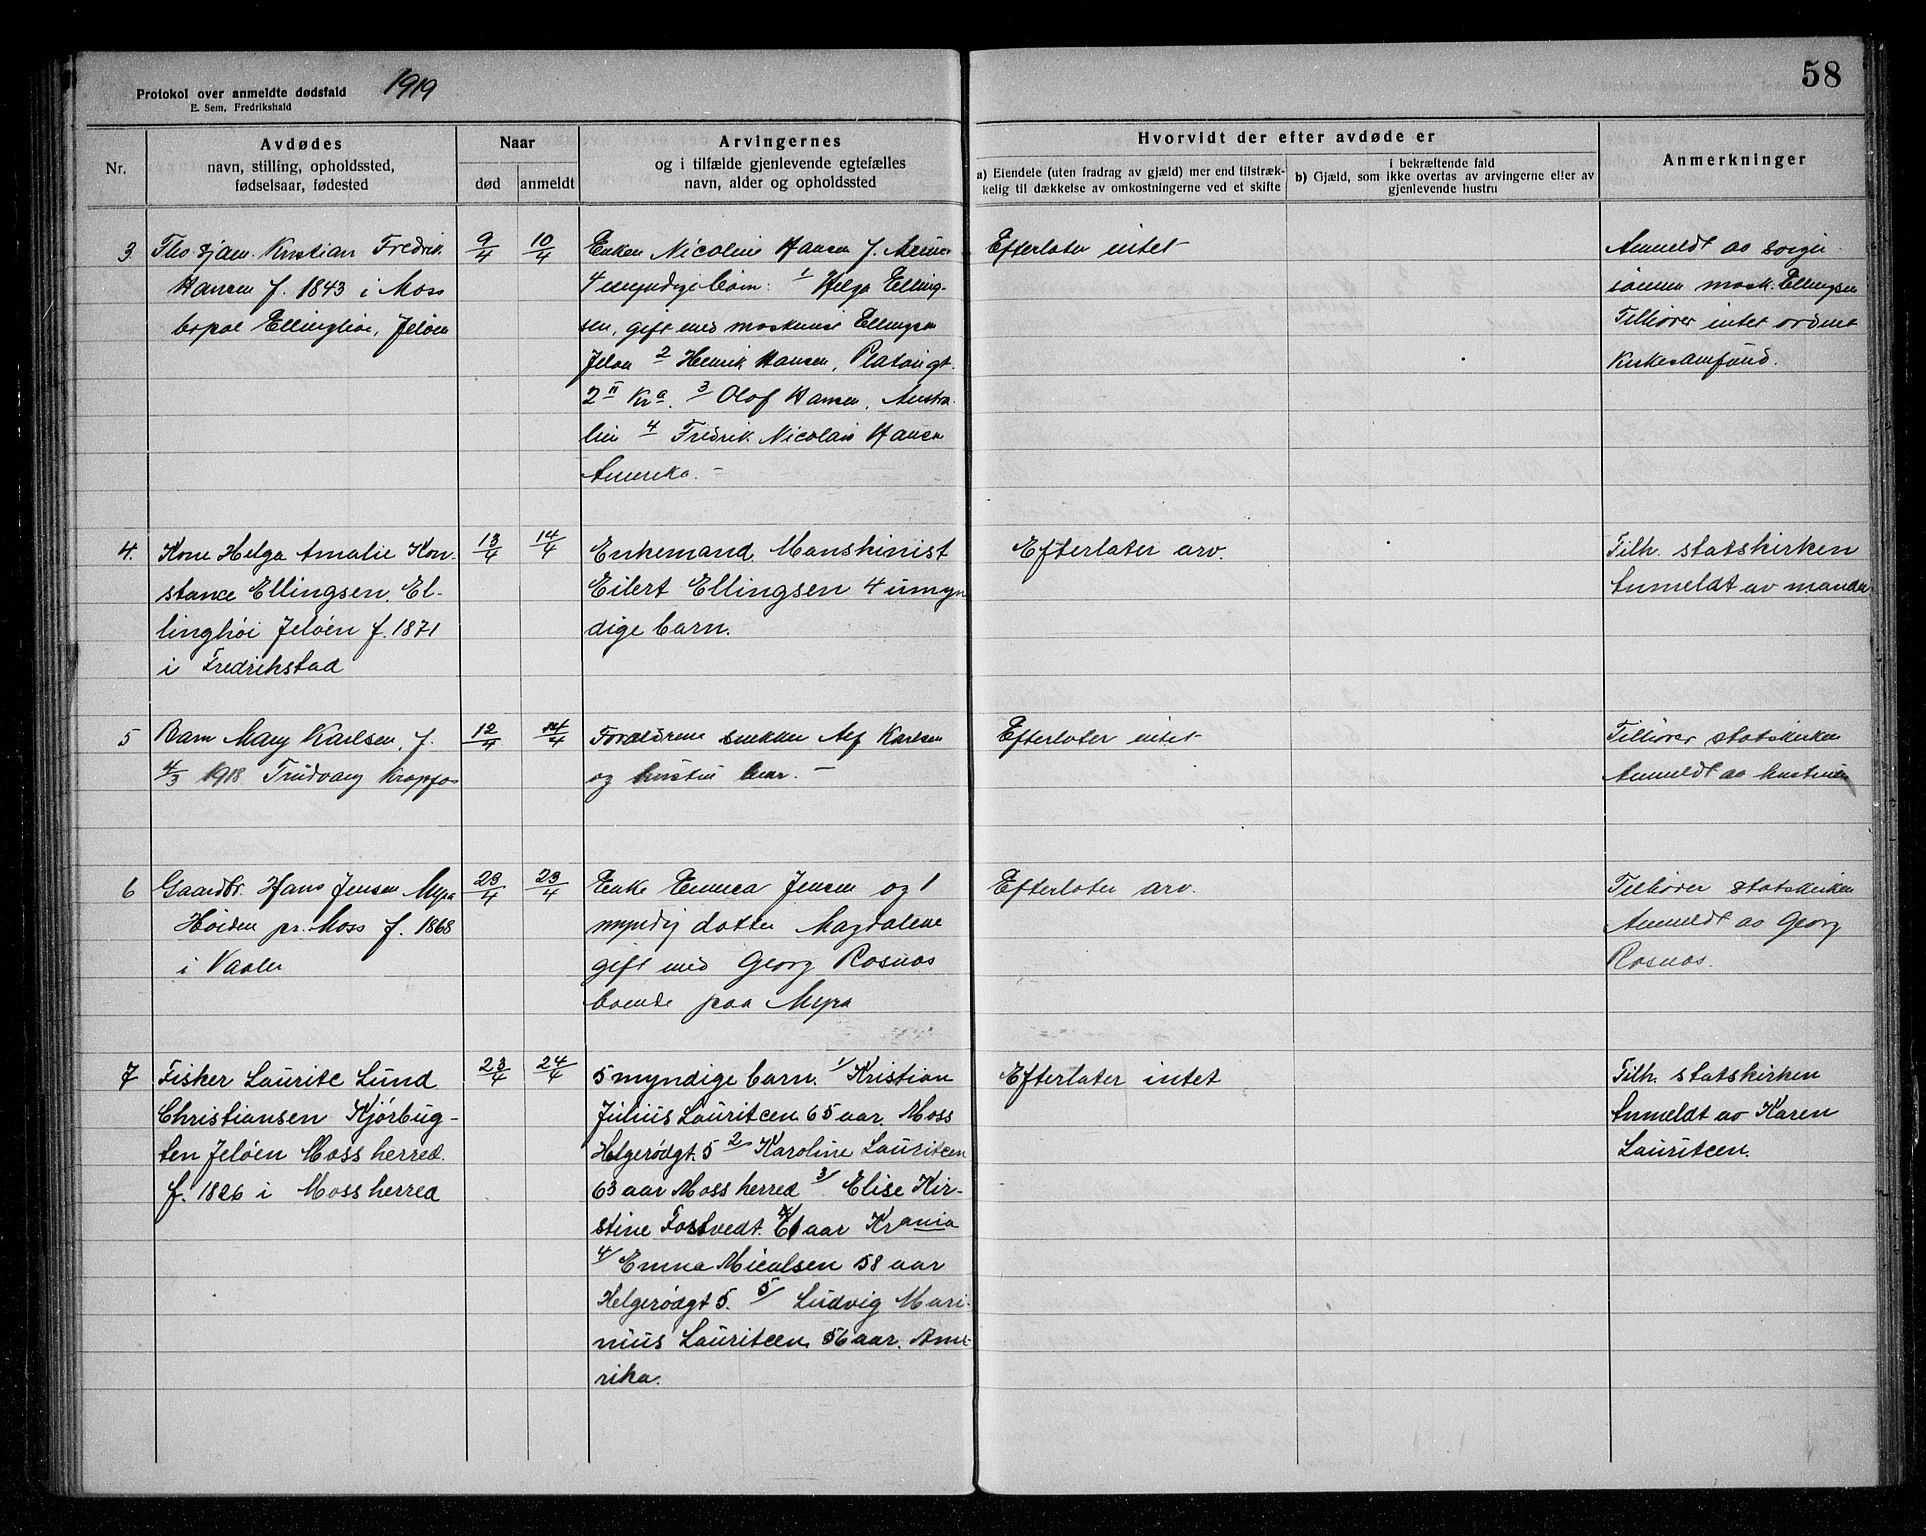 Protokol over anmeldte dødsfald
E. Sem, Fredrikshald
1919
58
Nr.
Avdødes
navn, stilling, opholdssted,
fødselsaar, fødested
Naar
død
anmeldt
Arvingernes
og i tilfælde gjenlevende egtefælles
navn, alder og opholdssted
Hvorvidt der efter avdøde er
a) Eiendele (uten fradrag av gjæld) mer end tilstræk-
kelig til dækkelse av omkostningerne ved et skifte
i bekræftende fald
b) Gjæld, som ikke overtas av arvingerne eller av
gjenlevende hustru
Anmerkninger
3
Kristian Fredrik
Hansen f. 1843 i Moss
bopæl Ellinghøi, Jeløen
9/4
10/4
Enken Nicoline Hansen f.
4 myndige børn: 1 Helga Elling-
sen, gift med maskinist Ellingsen
Jeløn 2 Henrik Hansen, Platougt.
2 II Kra. 3 Olaf Hansen, Austra-
lien 4 Fredrik Nicolai Hansen
Amerika. -
Efterlater intet
Anmeldt av sviger-
sønnen mask. Ellingsen
Tilhører intet ordnet
kirkesamfund.
4.
Kone Helga Amalie Kon-
stance Ellingsen. El-
linghøi Jeløen f. 1871
i Fredrikstad
13/4
14/4
Enkemand. Manskinist
Eilert Ellingsen 4 umyn
dige barn.
Efterlater arv.
Tilh. statskirken
Anmeldt av manden
5
Barn Mary Karlsen, f.
4/3 1918 Trudvang Krapfos
12/4
14/4
Forældrene snekker Alf Karlsen
og hustru her. -
Efterlater intet
Tilhører statskirken
Anmeldt av hustruen
6
Gaardbr. Hans Jensen Myra
Høiden pr. Moss f. 1868
i Vaaler
23/4
23/4
Enke Emma Jensen og 1
myndig datter Magdalene
gift med Georg Rosnæs
boende paa Myra
Efterlater arv.
Tilhører statskirken
Anmeldt av Georg
Rosnæs.
7
Fisker Lauritc Lund
Christiansen Kjørbug-
ten Jeløen Moss herred.
f. 1826 i Moss herred
23/4
24/4
5 myndige barn. 1/ Kristian
Julius Lauritcen 65 aar Moss
Helgerødgt. 5 2 Karoline Lauritcen
63 aar Moss herred 3/ Elise Kir-
stine Fostvedt. 61 aar Krania
4/ Emna Micalsen 58 aar
Helgerødgt 5. 5/ Ludvig Mari-
nius Lauritcen 56 aar. Ame-
rika.
Efterlater intet
Tilh. statskirken
Anmeldt av Karen
Lauritcen.